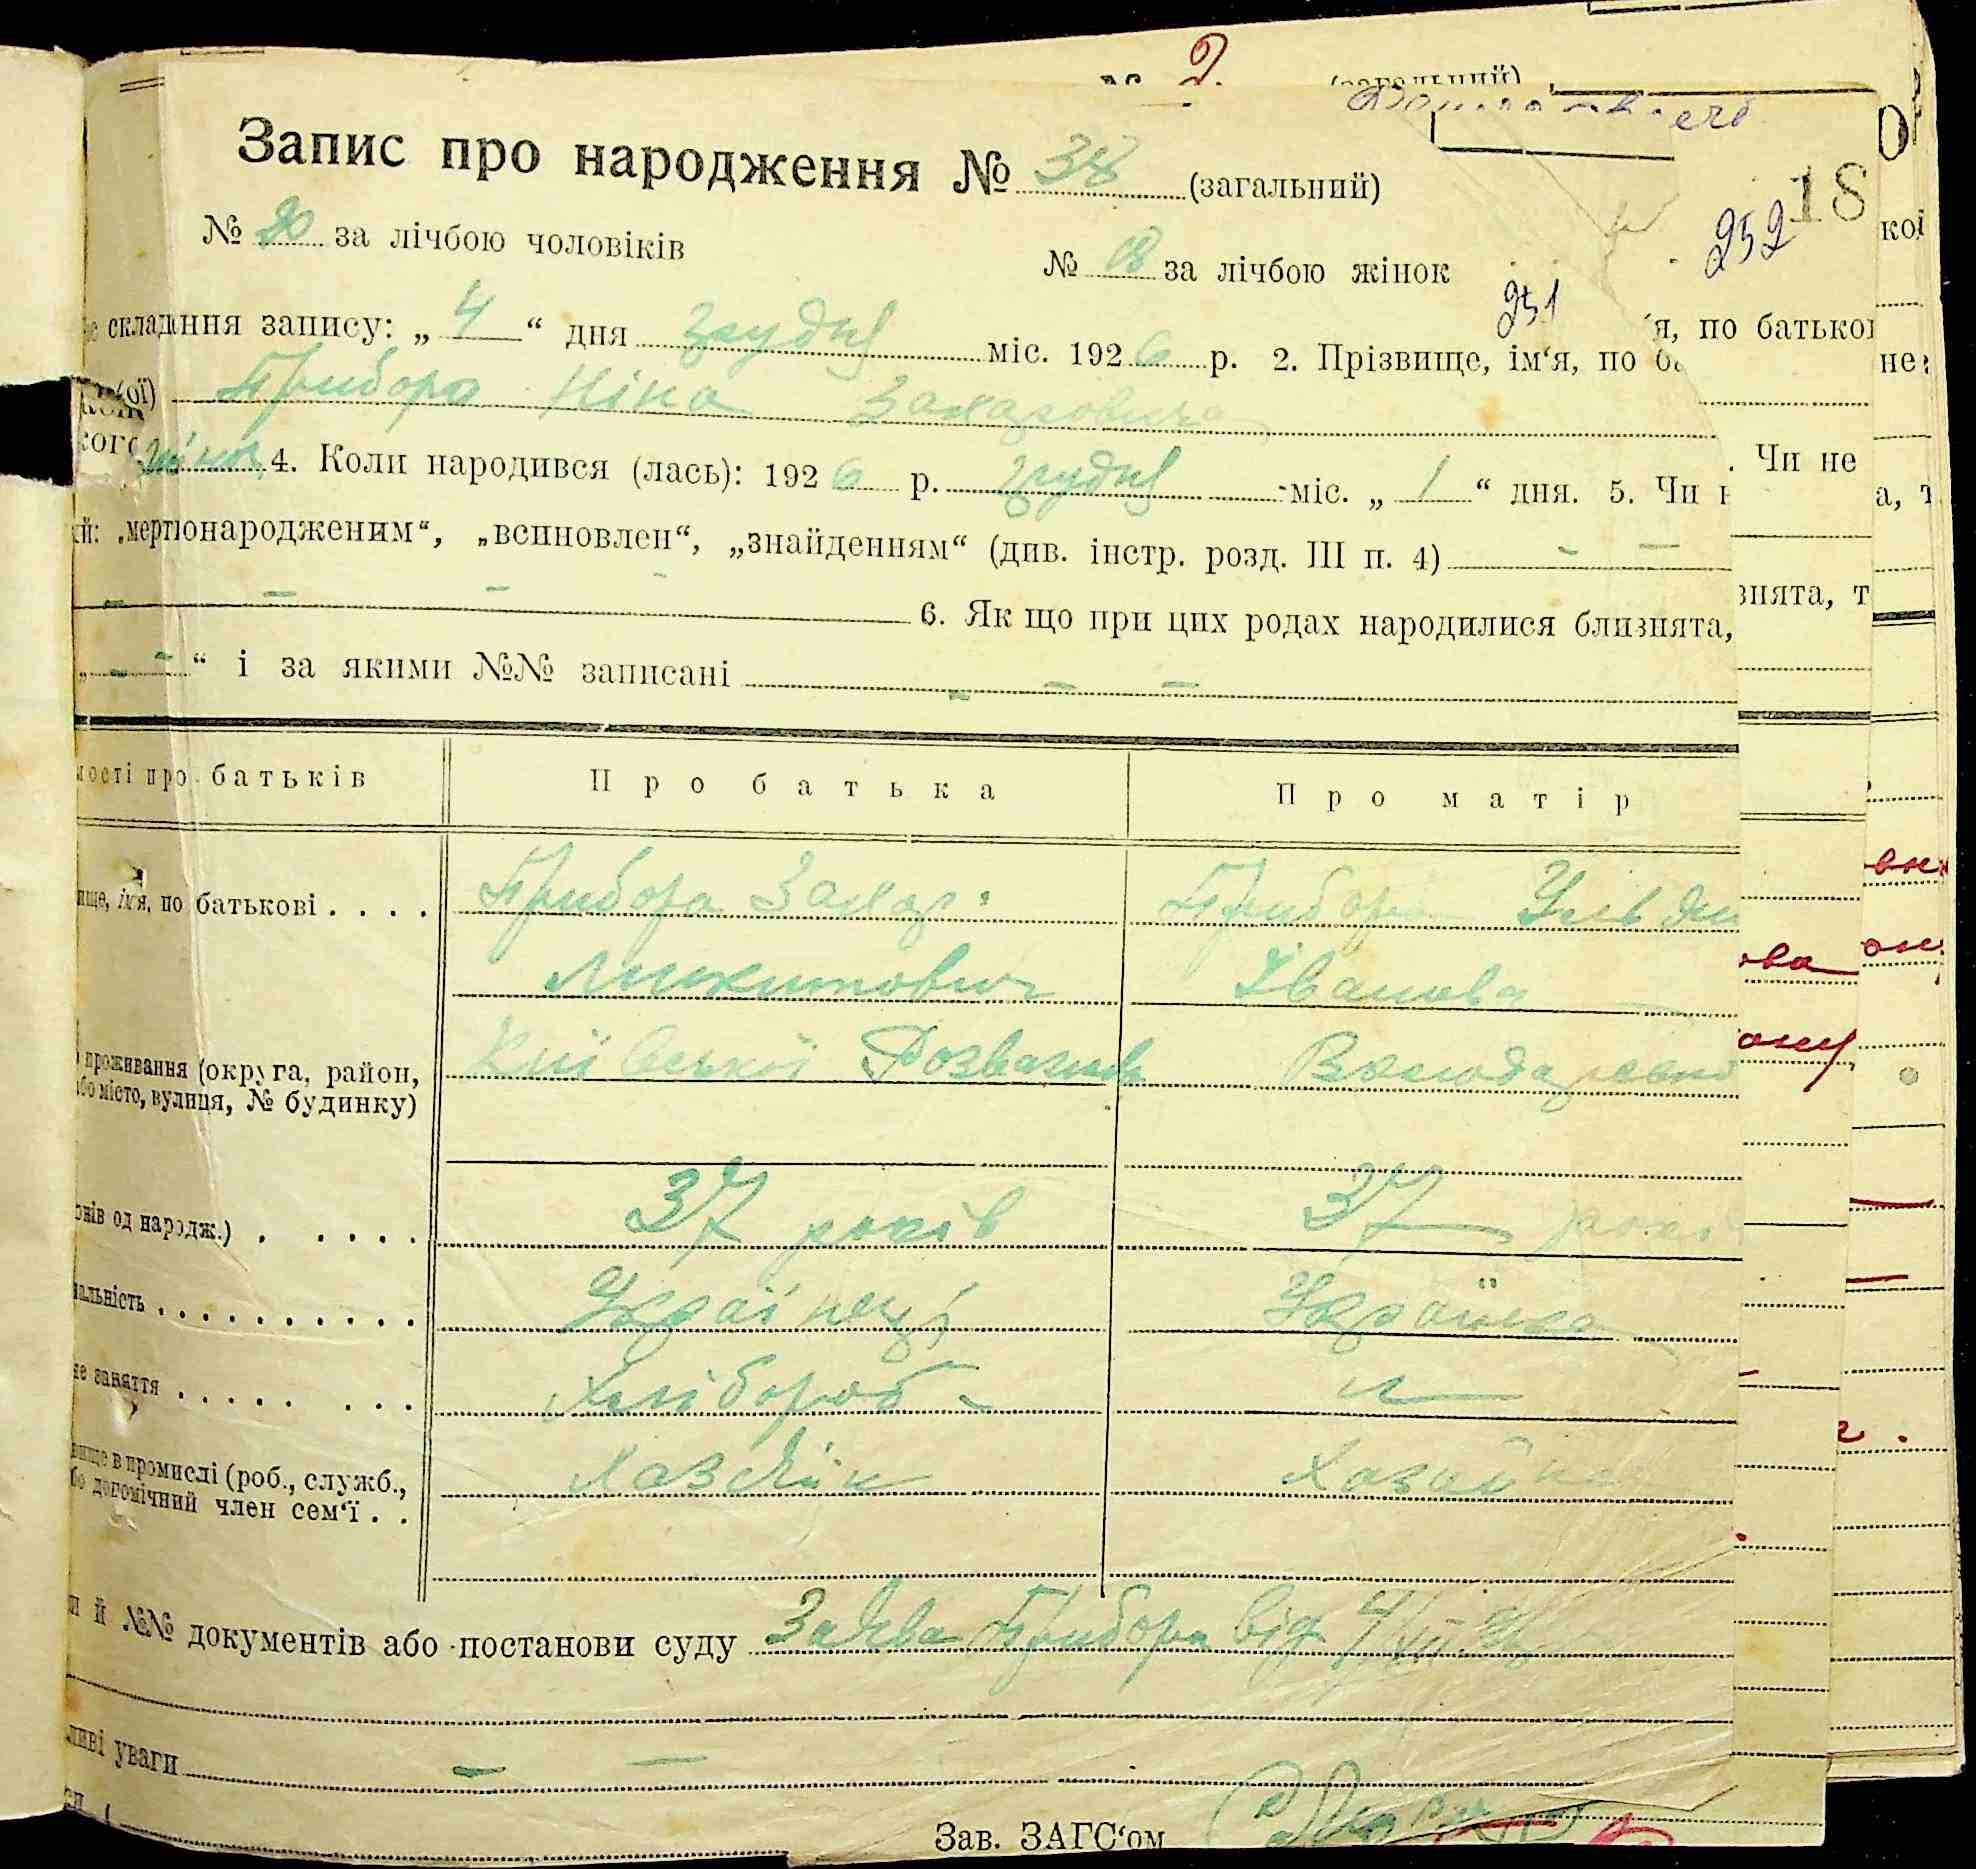 2.
Запис про народження № 38 (загальний)
18
№ 20 за лічбою чоловіків
№ 18 за лічбою жінок
252
251
складання запису: „ 4 “ дня грудня міс. 1926 р. 2. Прізвище, ім‘я, по
я, по батькові
Прибора Ніна Захаровича
жіноч. 4. Коли народився (лась): 1926 р. грудня міс. „ 1 “ дня. 5. Чи
Чи не
„мертвонародженим“, „всиновлен“, „знайденням“ (див. інстр. розд. III п. 4) – –
– – – – 6. Як що при цих родах народилися близнята,
„ – – “ і за якими №№ записані – – –
батьків
Про батька
Про матір
ім‘я, по батькові . . . .
Прибора Захар
Прибора
Микитович
Іванова
проживання (округа, район,
або місто, вулиця, № будинку)
Київської Розважів
Володарська
од народж.) . . . . .
37 років
37 років
Українец
Українка
заняття . . . . . . . .
Хлібороб –
в промислі (роб., служб.,
допомічний член сем‘ї . .
Хазяїн
Хазяйка
й №№ документів або постанови суду Заява Прибора від 4/XII 26
уваги – –
Зав. ЗАГС‘ом